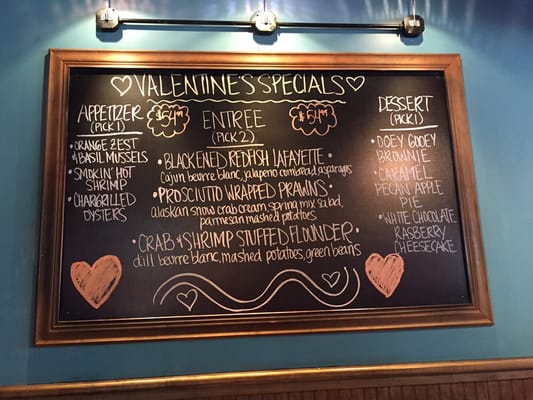 ♡VALENTINE'S SPECIALS♡
APPETIZER
(PICK 1)
• ORANGE ZEST
& BASIL MUSSELS
• SMOKIN' HOT
SHRIMP
• CHARGRILLED
OYSTERS
$54
ENTREE
(PICK 2)
$54
• BLACKENED REDFISH LAFAYETTE •
cajun beurre blanc, jalapeno cornbread, asparagus
• PROSCIUTTO WRAPPED PRAWNS •
alaskan snow crab cream, spring mix salad,
parmesan mashed potatoes
• CRAB & SHRIMP STUFFED FLOUNDER •
dill beurre blanc, mashed potatoes, green beans
DESSERT
(PICK 1)
• OOEY GOOEY
BROWNIE
• CARAMEL
PECAN APPLE
PIE
• WHITE CHOCOLATE
RASBERRY
CHEESECAKE